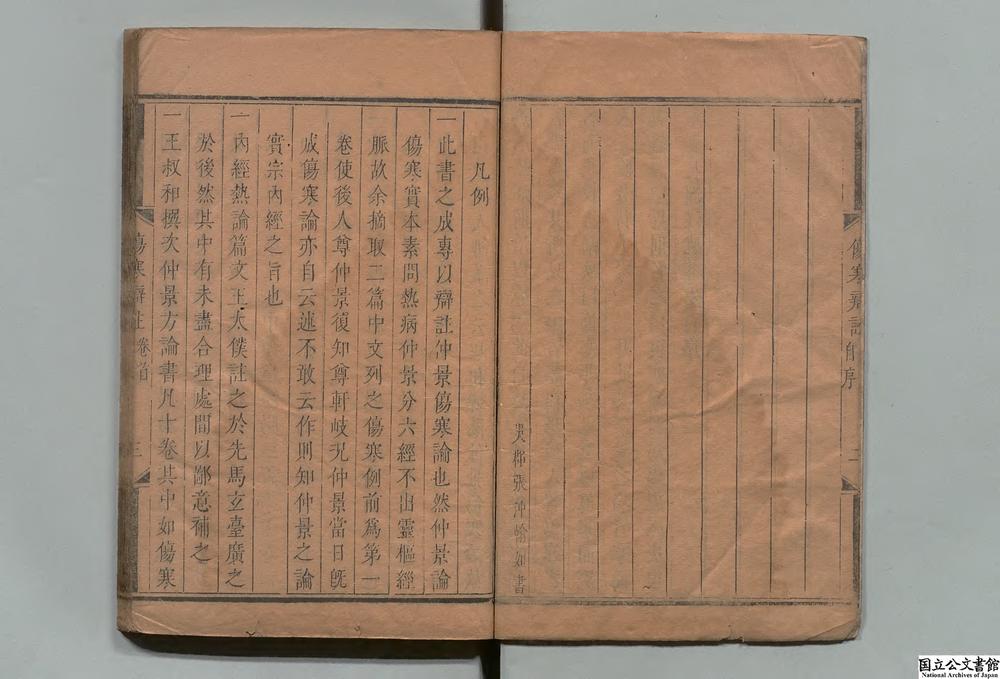 傷寒辯註自序
二
吳郡張沖愉如書
凡例
一此書之成專以辯註仲景傷寒論也然仲景論
傷寒實本素問熱病仲景分六經不出靈樞經
脈故余摘取二篇中文列之傷寒例前為第一
卷使後人尊仲景復知尊軒岐況仲景當日旣
成傷寒論亦自云述不敢云作則知仲景之論
實宗內經之旨也
一內經熱論篇文王太僕註之於先馬玄臺廣之
於後然其中有未盡合理處間以鄙意補之
一王叔和撰次仲景方論書凡十卷其中如傷寒
傷寒辯註
卷首
三
国立公文書館
National Archives of Japan